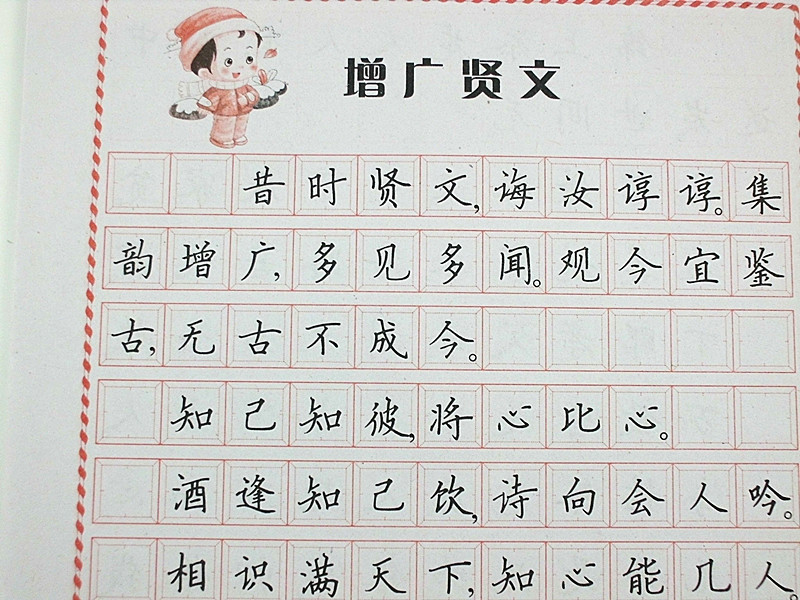 增广贤文
昔时贤文,诲汝谆谆。集
韵增广,多见多闻。观今宜鉴
古,无古不成今。
知己知彼,将心比心。
酒逢知己饮,诗向会人吟。
相识满天下,知心能几人。